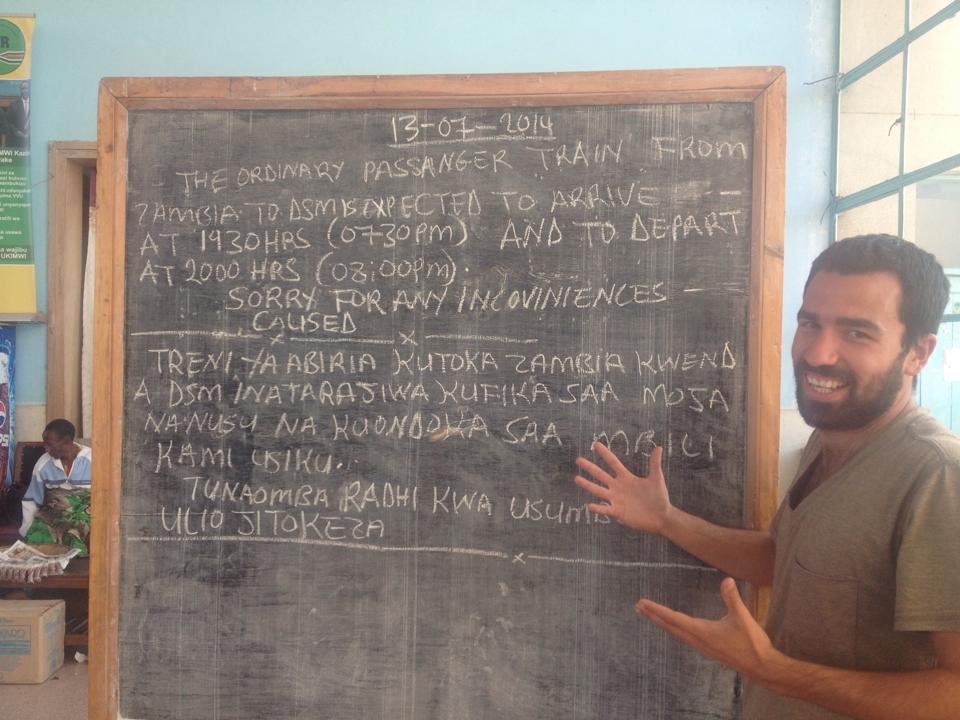 13-07-2014
THE ORDINARY PASSANGER TRAIN FROM
ZAMBIA TO DSM IS EXPECTED TO ARRIVE - -
AT 1930HRS (0730PM) AND TO DEPART
AT 2000 HRS (08:00PM).
SORRY FOR ANY INCOVINIENCES —
CAUSED
x x
TRENI YA ABIRIA KUTOKA ZAMBIA KWEND
A DSM INATARAJIWA KUFIKA SAA MOJA
NA NUSU NA KUONDOKA SAA MBILI
KAMI USIKU..
TUNAOMBA RADHI KWA USUMB
ULIO JITOKEZA
x
UKIMWI